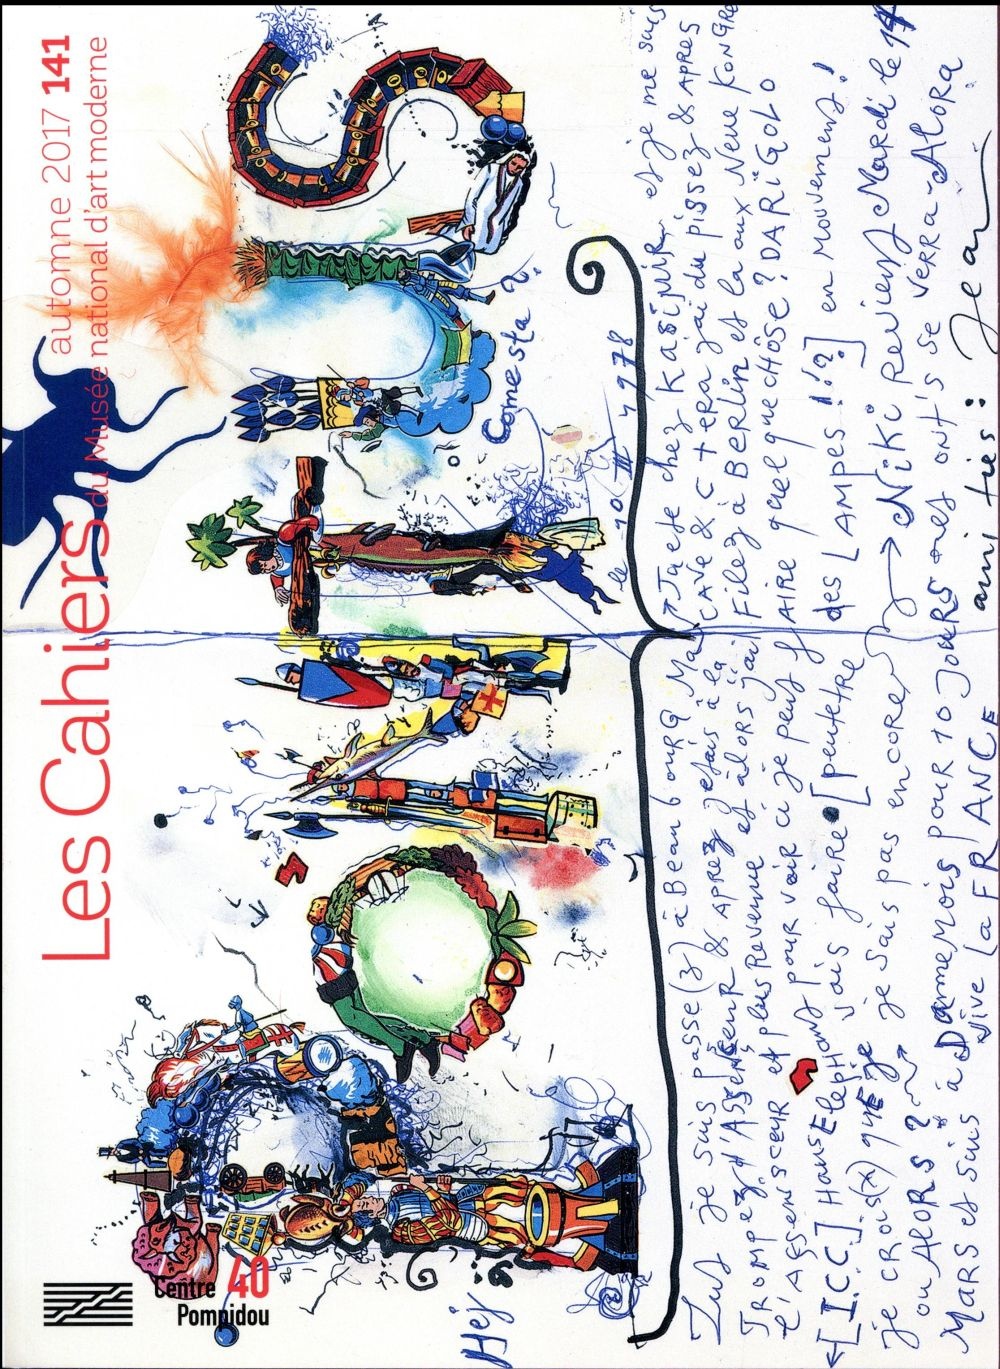 Les Cahiers du Musée national d'art moderne
automne 2017 141
Centre Pompidou 40
PONTUS
Hej
Come sta?
le 10 III 1978
Zut je suis passe (z) à Beaubourg Tu este chez KaSiMiR et je me suis
TROMPEZ d'ASSENSEUR & APREZ j'etais à la CAVE & C tera j'ai du pissez & APRES
l'ASSENSCEUR et plus Revenne et alors j'ai FileZ à BeRLiN et la aux Neue KONGRE
[I.C.C] Hans Elephant pour voir ci je peux fAIRE quel que CHÔSE? DARiGOLO
je vais faire [peutetre des LAMPES !!?] en mouvement!
je CROIS(X) que je sais pas encore → NiKi Revient MaRdi le 14
ou AlORS?
MARS et suis à Dannemois pour 10 JOURS ont's se VeRRA-AloRA
Vive La FRANCE amitiés: Jean